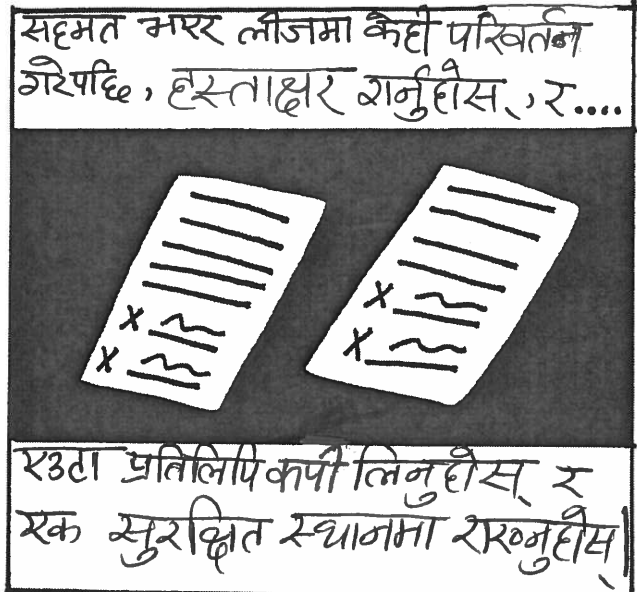 सहमत भएर लीजमा केही परिवर्तन
गरेपछि, हस्ताक्षर गर्नुहोस्, र....
X
X
X
X
एउटा प्रतिलिपि कपी लिनुहोस् र
एक सुरक्षित स्थानमा राख्नुहोस्|